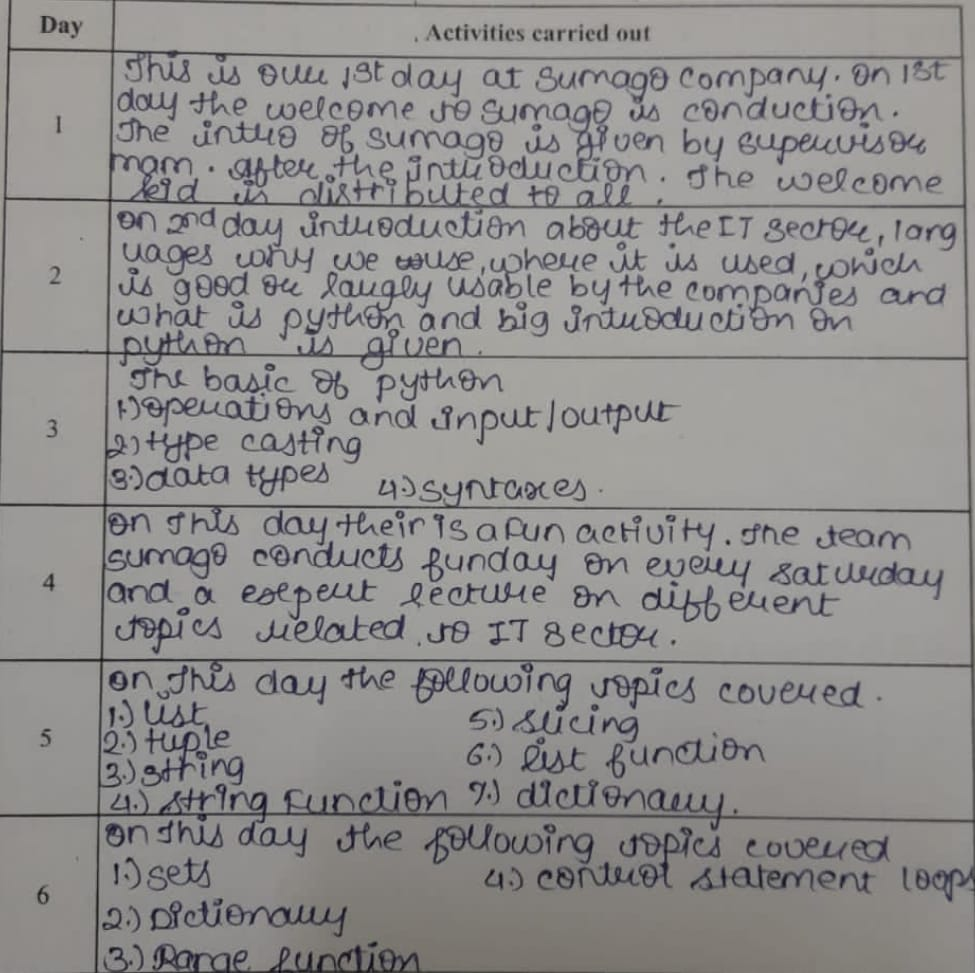 Day Activities carried out
1
This is our 1st day at Sumago company. On 1st
day the welcome to Sumago is conduction.
The intro of Sumago is given by supervisor
mam. After the introduction. The welcome
kid is distributed to all.
2
on 2nd day introduction about the IT sector, lang
uages why we use, where it is used, which
is good or laugly usable by the companies and
what is python and big introduction on
python is given.
3
The basic of python
1.) operations and input/output
2) type casting
3.) data types 4.) syntaxes.
4
on This day their is a fun activity. The team
sumago conducts funday on every saturday
and a expert lecture on different
topics related to IT sector.
5
on This day the following topics covered.
1.) list 5.) slicing
2.) tuple 6.) list function
3.) string
4.) string function 7.) dictionary.
6
on This day the following topics covered
1.) sets 4.) control statement loops
2.) Dictionary
3.) Range function